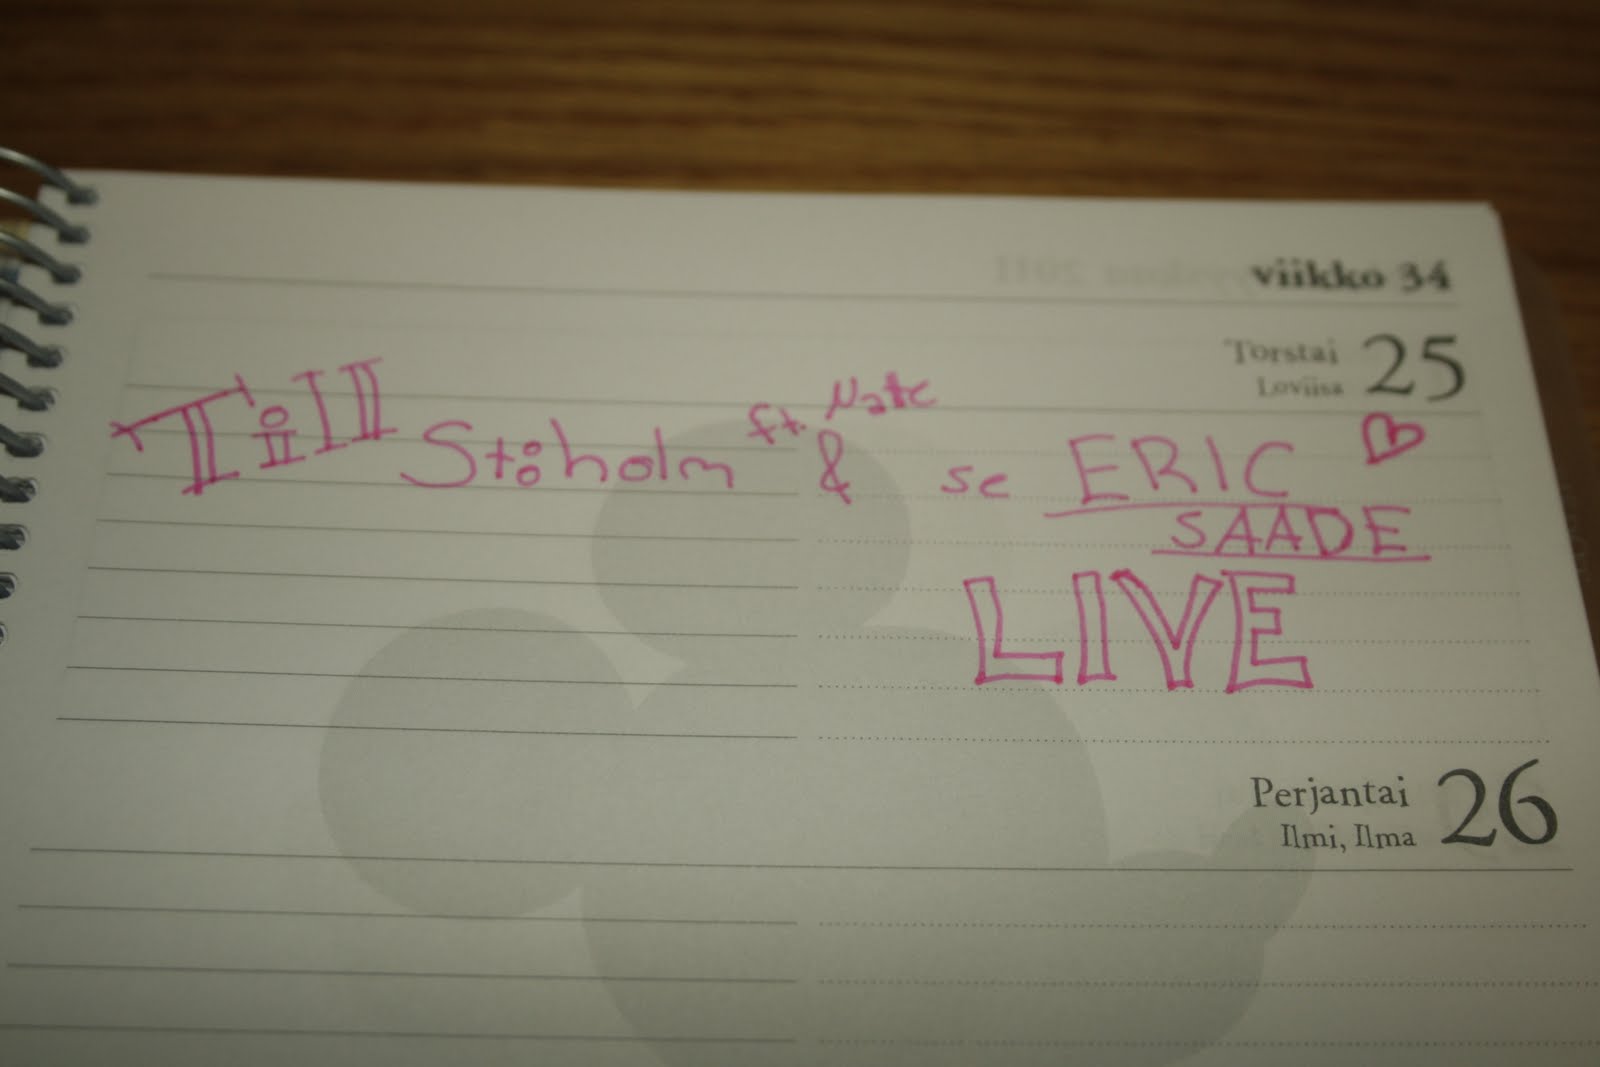 viikko 34
Torstai 25
Loviisa
Till Stöholm ft. Nate & se ERIC
SAADE
LIVE
Perjantai 26
Ilmi, Ilma